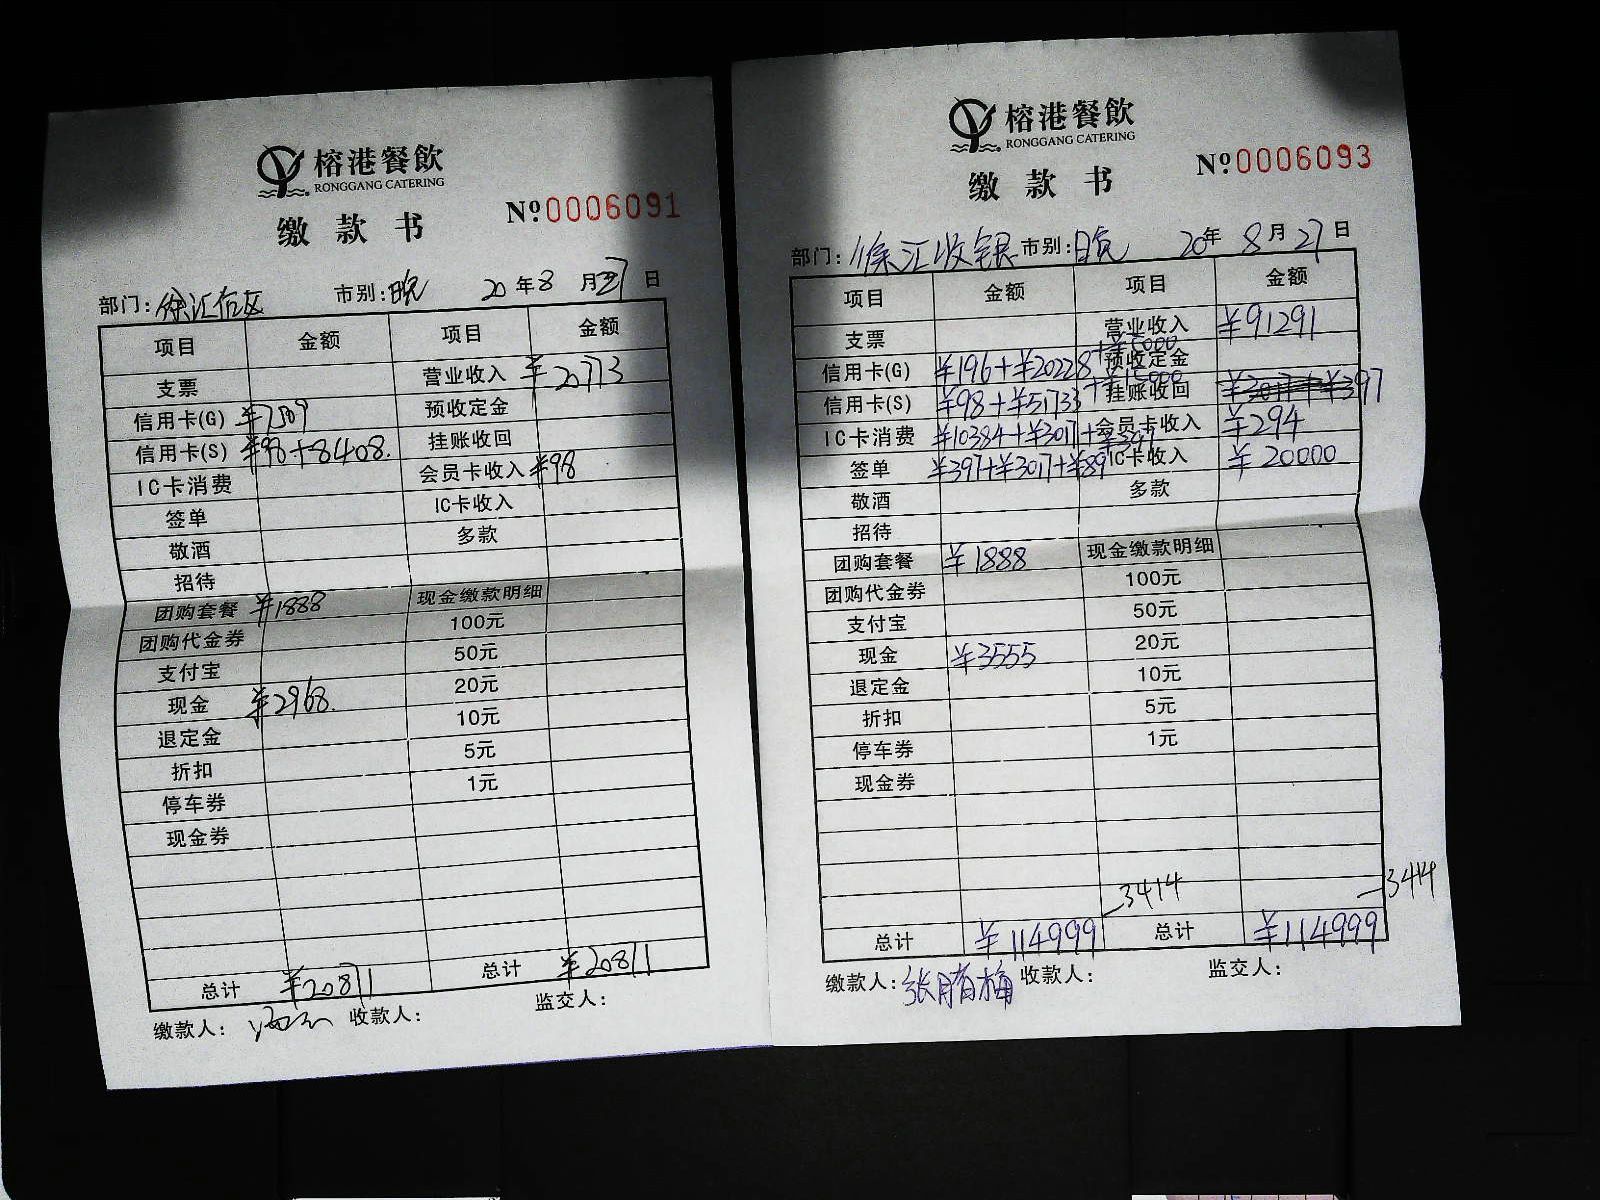 榕港餐飲
RONGGANG CATERING
缴款书
Nº0006091
部门: 徐汇 市别: 晚 20年8月27日
项目 金额 项目 金额
支票 营业收入 ¥20773
信用卡(G) ¥7509 预收定金
信用卡(S) ¥98+8408. 挂账收回
IC卡消费 会员卡收入 ¥98
签单 IC卡收入
敬酒 多款
招待
团购套餐 ¥1888 现金缴款明细
团购代金券 100元
支付宝 50元
现金 ¥2968. 20元
退定金 10元
折扣 5元
停车券 1元
现金券
总计 ¥20871 总计 ¥20871
缴款人: 收款人: 监交人:
榕港餐飲
RONGGANG CATERING
缴款书
Nº0006093
部门: 徐汇收银 市别: 晚 20年8月27日
项目 金额 项目 金额
支票 营业收入 ¥91291
信用卡(G) ¥196+¥20228+¥5000 预收定金
信用卡(S) ¥98+¥51733+¥15000 挂账收回 ¥3017+¥397
IC卡消费 ¥10384+¥3017+¥397 会员卡收入 ¥294
签单 ¥397+¥3017+¥89 IC卡收入 ¥20000
敬酒 多款
招待
团购套餐 ¥1888 现金缴款明细
团购代金券 100元
支付宝 50元
现金 ¥3555 20元
退定金 10元
折扣 5元
停车券 1元
现金券
-3414 -3414
总计 ¥114999 总计 ¥114999
缴款人: 张腊梅 收款人: 监交人: